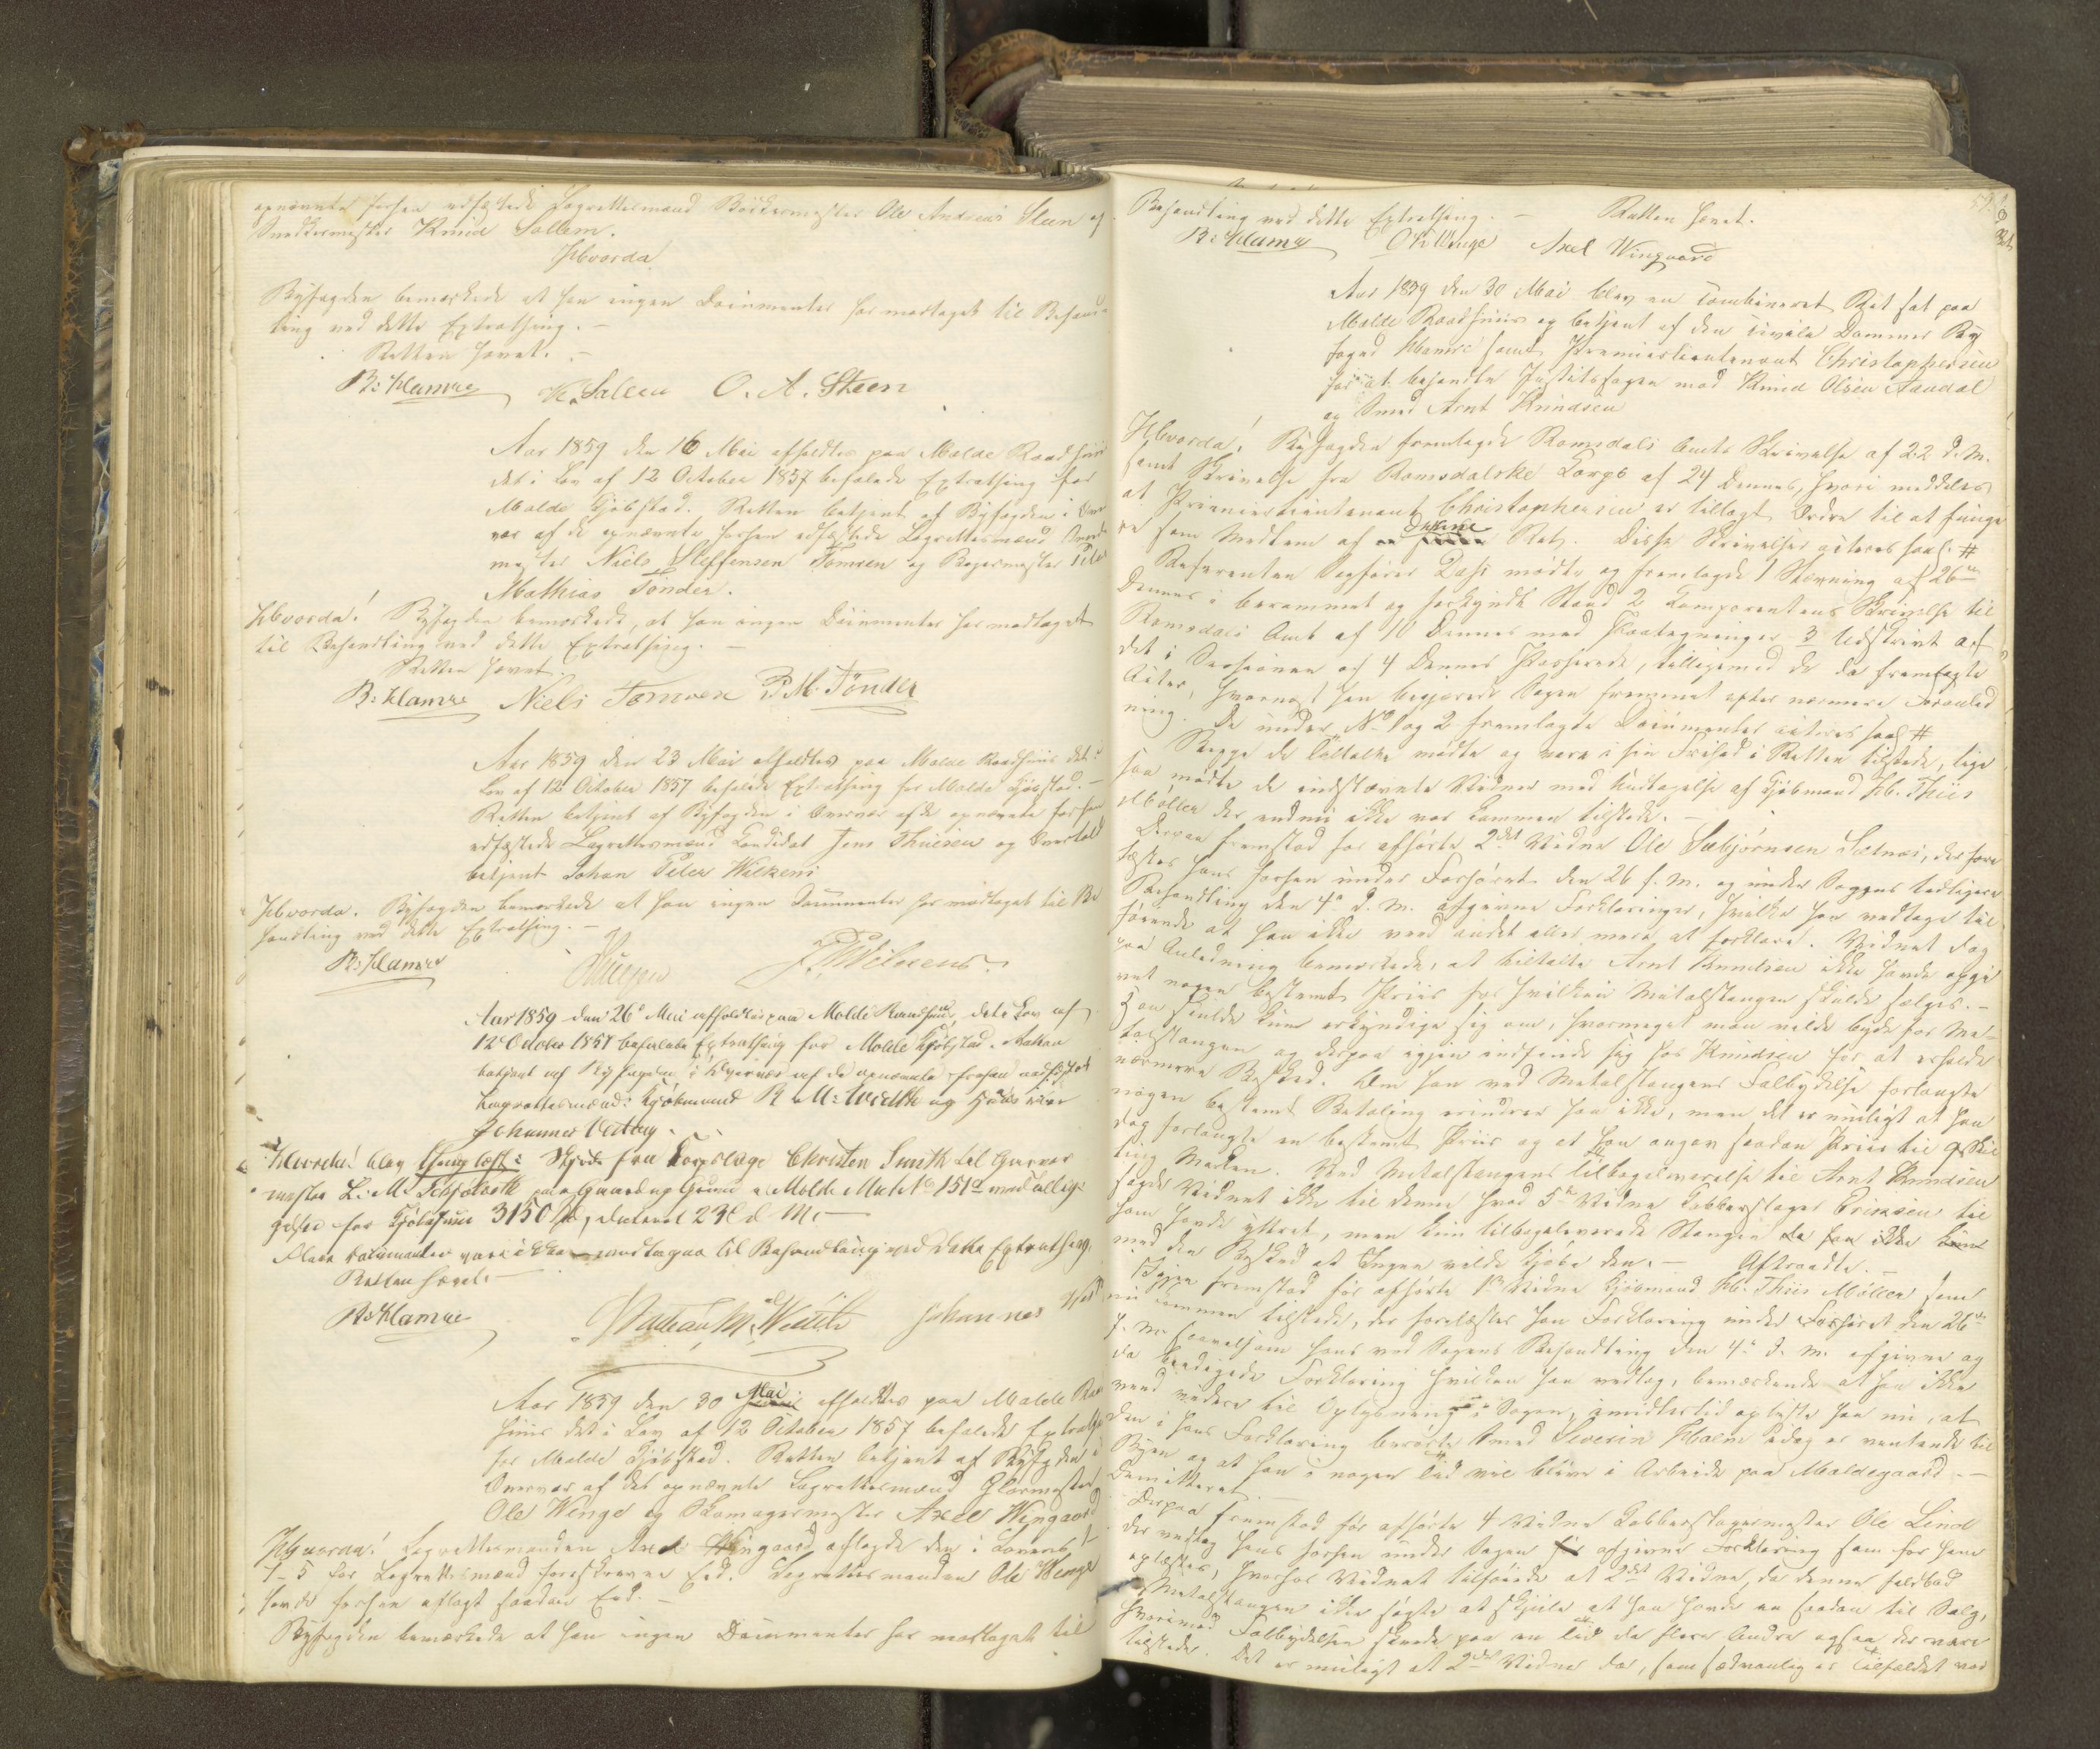 opnævnte forhen edfæstede Lagrettesmænd Bødkermester Ole Andreas Steen og
Snedkermester Knud Sallem.
Hvorda
Byfogden bemærkede at han ingen Documenter har modtaget til Behand-
ling ved dette Extrathing. –
Retten hævet. –
B: Hamre K. Sallem O. A. Steen
Aar 1859 den 16 Mai afholdtes paa Molde Raadhuus
det i Lov af 12 October 1857 befalede Extrathing for
Molde Kjøbstad. Retten betjent af Byfogden i Over
vær af de opnævnte forhen edfæstede Lagrettesmænd
Niels Steffensen Tomren og Bagermester Peter
Mathias Tønder.
Hvorda! Byfogden bemærkede, at han ingen Documenter har modtaget
til Behandling ved dette Extrathing. –
Retten hævet.
B: Hamre Niels Tomren P. M. Tønder
Aar 1859 den 23 Mai afholdtes paa Molde Raadhuus det i
Lov af 12 October 1857 befalede Extrathing for Molde Kjøbstad. –
Retten betjent af Byfogden i Overvær af de opnævnte forhen
edfæstede Lagrettesmænd Candidat Jens Thuesen og Overtold
betjent Johan Peter Wilkens
Hvorda. Byfogden bemærkede at han ingen Documenter har modtaget til Be
handling ved dette Extrathing. –
B: Hamre Thuesen J. P. Wilkens.
Aar 1859 den 26 Mai afholdtes paa Molde Raadhuus, det i Lov af
12 October 1857 befalede Extrathing for Molde Kjøbstad. Retten
betjent af Byfogden i Overvær af de opnævnte forhen edfæstede
Lagrettesmænd: Kjøbmand R. M: Wiedth og
Johannes
Hvorda! blev thinglæst: Skjøde fra Corpslæge Christen Smith til Garver
mester L: M: paa Gaard og Grund i Molde Mat No 151a med
for Kjøbesum 3150 Spd, dateret 23 d. M. –
Flere Documenter vare ikke modtagne til Behandling ved dette Extrathing.
Retten hævet. –
B: Hamre Johannes
Aar 1859 den 30 Mai afholdtes paa Molde Raad
huus det i Lov af 12 October 1857 befalede Extrathing
for Molde Kjøbstad. Retten betjent af Byfogden i
Overvær af de opnævnte Lagrettesmænd Glarmester
Ole Wenge og Skomagermester Axel Wingaard
Hvorda! Lagrettesmanden Axel Wingaard aflagde den i Lovens 1-
7-5 for Lagrettesmænd foreskrevne Eed. Lagrettesmanden Ole Wenge
havde forhen aflagt saadan Eed. –
Byfogden bemærkede at han ingen Documenter har modtaget til
Behandling ved dette Extrathing. – Retten hævet.
B: Hamre O K Wenge Axel Wingaard
Aar 1859 den 30 Mai blev en combineret Ret sat paa
Molde Raadhuus og betjent af den civile Dommer By
foged Hamre samt Premierlieutenant Christophersen
for at behandle Justitssagen mod Knud Olsen Aandal
og Smed Arnt Knudsen
Hvorda! Byfogden fremlagde Romsdals Amts Skrivelse af 22 d. M.
samt Skrivelse fra Romsdalske Corps af 24 dennes, hvori meddeles
at Premierlieutenant Christophersen er tillagt Ordre til at funge
re som Medlem af denne Ret. Disse Skrivelser acteres saal. #
Referenten Sagfører Dahl mødte og fremlagde 1 Stævning af 26de
dennes i berammet og forkyndt Stand 2 Comparentens Skrivelse til
Romsdals Amt af 10 dennes med Paategninger 3 Udskrivt af
det i Sessionen af 4 dennes Passerede, tilligemed de da fremlagte
Acter, hvornæst han begjærede Sagen fremmet efter nærmere Foranled
ning. De under No 1 og 2 fremlagte Documenter acteres saal. #
Begge de Tiltalte mødte og vare i sin Frihed i Retten tilstede, lige
saa mødte de indstævnte Vidner med Undtagelse af Kjøbmand H. Thiis
Møller der endnu ikke var kommen tilstede. –
Derpaa fremstod før afhørte 2det Vidne Ole Sæbjørnsen Sølnæs, der fore
læstes hans forhen under Forhøret den 26 f. M. og under Sagens tidligere
Behandling den 4de d. M. afgivne Forklaringer, hvilke han vedtog til
føiende at han ikke veed andet eller mere at forklare. Vidnet dog
paa Anledning bemærkede, at tiltalte Arnt Knudsen ikke havde opgi
vet nogen bestemt Priis for hvilken Metalstangen skulde sælges. –
Han skulde kun erkyndige sig om, hvormeget man vilde byde for Me-
talstangen og derpaa igjen indfinde sig hos Knudsen for at erholde
nærmere Besked. Om han ved Metalstangens Falbydelse forlangte
nogen bestemt Betaling erindrer han ikke, men det er muligt at han
dog forlangte en bestemt Priis og at han angav saadan Priis til 9 Skil
ling Marken. Ved Metalstangens Tilbageleverelse til Arnt Knudsen
sagde Vidnet ikke til denne hvad 5te Vidne Kobberslager Eriksen til
ham havde yttret, men kun tilbageleverede Stangen
med den Besked at Ingen vilde kjøbe den. – Aftraadte. –
Igjen fremstod før afhørte 1ste Vidne Kjøbmand H. Thiis Møller som
nu kommen tilstede, der forelæstes hans Forklaring under Forhøret den 26de
f. M. saavelsom hans ved Sagens Behandling den 4de d. M. afgivne og
da beedigede Forklaring hvilken han vedtog, bemærkende at han ikke
veed videre til Oplysning i Sagen, imidlertid oplyste han nu, at
den i hans Forklaring berørte Smed Severin Holm idag er ventende til
Byen og at han i nogen Tid vil blive i Arbeide paa Moldegaard. –
Demitteret. –
Derpaa fremstod før afhørte 4 Vidne Kobberslagermester Ole Lind
der vedtog hans forhen under Sagen afgivne Forklaring som for ham
oplæstes, hvorhos Vidnet tilføiede at 2det Vidne, da denne falbød
Metalstangen ikke søgte at skjule at han havde en saadan til Salg,
hvorimod Falbydelsen skeede paa en Tid da flere Andre ogsaa der vare
tilstede. Det er muligt at 2det Vidne da, som sædvanlig er Tilfældet ved